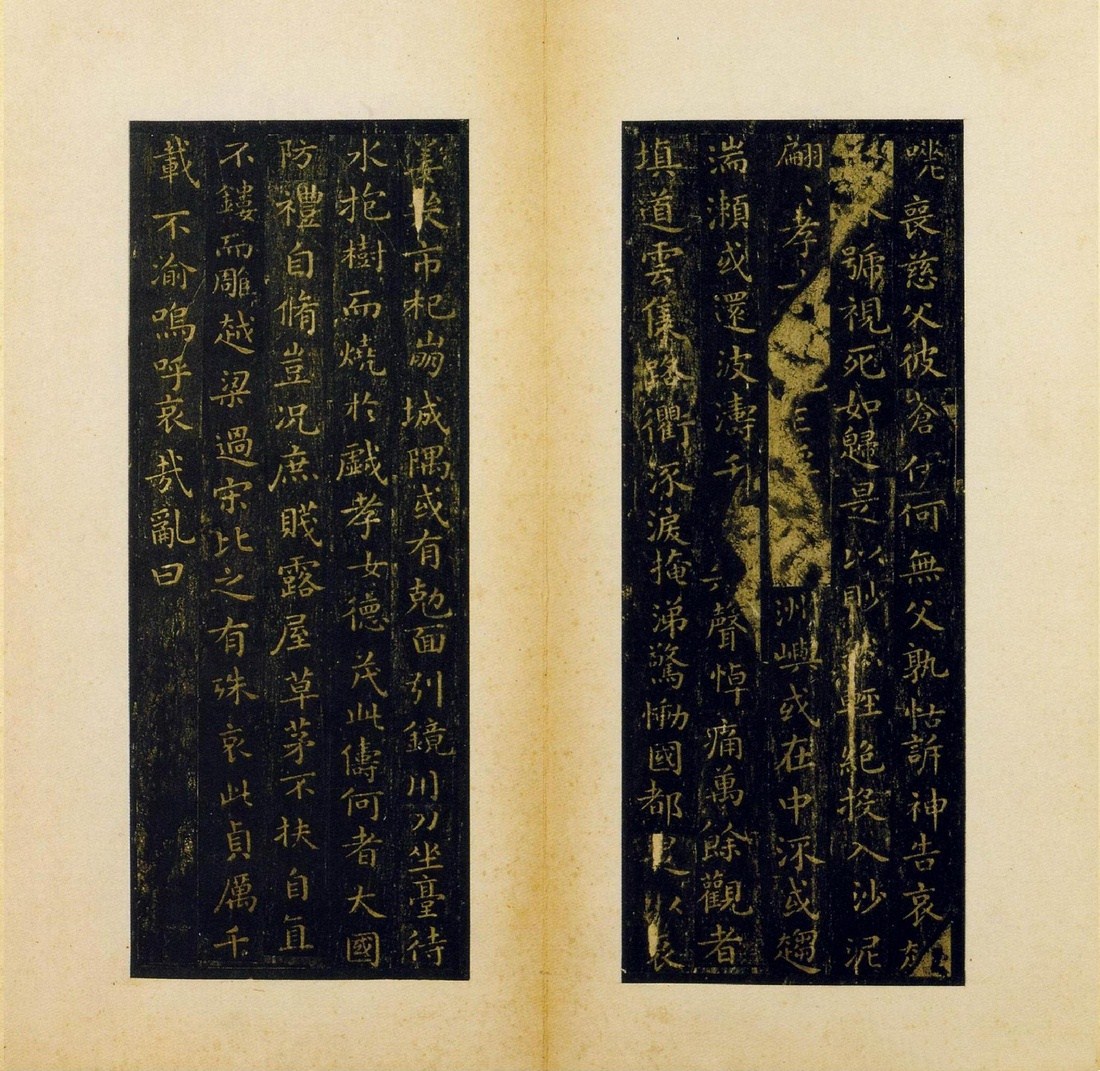 喪慈父彼蒼伊何無父孰怙訴神告哀
號視死如歸是以眇然輕絕投入沙泥
翩〻孝女 洲嶼或在中流或趨
湍瀨或還波濤千 聲悼痛萬餘觀者
填道雲集路衢泳淚掩涕驚慟國都是以哀
姜哭市杞崩城隅或有剋面引鏡川刀坐臺待
水抱樹而燒於戲孝女德茂此儔何者大國
防禮自脩豈況庶賤露屋草茅不扶自直
不鏤而雕越梁過宋比之有殊哀此貞厲千
載不渝嗚呼哀哉亂曰